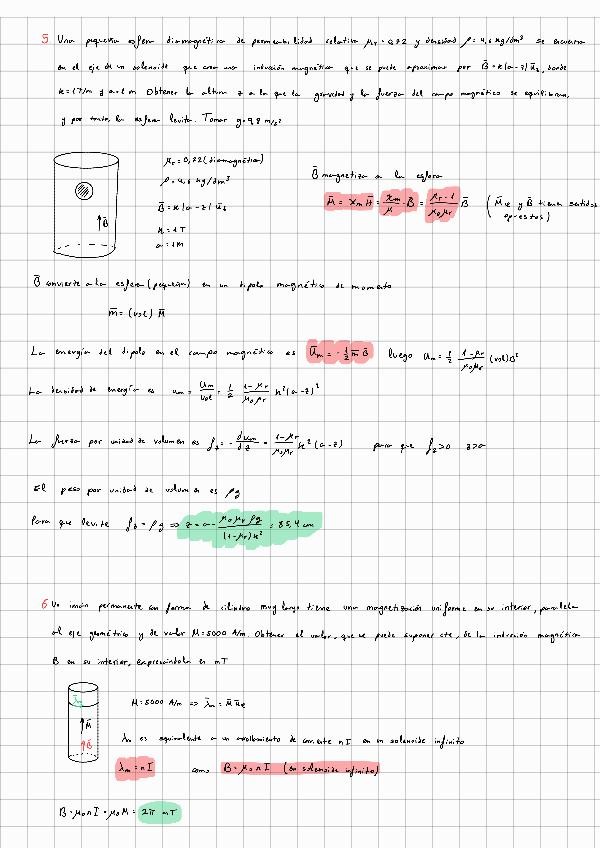 5 Una pequeña esfera diamagnética de permeabilidad relativa μr = 0,72 y densidad ρ = 4,6 kg/dm³ se encuentra
en el eje de un solenoide que crea una inducción magnética que se puede aproximar por B̄ = k(a-z)ūz, donde
k = 1 T/m y a = 1 m. Obtener la altura z a la que la gravedad y la fuerza del campo magnético se equilibran,
y por tanto, la esfera levita. Tomar g = 9,8 m/s²
μr = 0,72 (diamagnética)
ρ = 4,6 kg/dm³
B̄ = k(a-z) ūz
k = 1 T
a = 1 m
B̄
B̄ magnetiza a la esfera
M̄ = χm H̄ = χm/μ · B̄ = (μr - 1)/(μ0μr) B̄ (M̄ y B̄ tienen sentidos
opuestos)
B̄ convierte a la esfera (pequeña) en un dipolo magnético de momento
m̄ = (vol) M̄
La energía del dipolo en el campo magnético es Ūm = -½ m̄ B̄ luego Um = ½ (1-μr)/(μ0μr) (vol)B²
La densidad de energía es um = Um/vol = ½ (1-μr)/(μ0μr) k²(a-z)²
La fuerza por unidad de volumen es fz = -dum/dz = (1-μr)/(μ0μr) k²(a-z) para que fz>0 z>a
El peso por unidad de volumen es ρg
Para que levite fz = ρg ⇒ z = a - μ0μrρg/((1-μr)k²) = 85,4 cm
6 Un imán permanente con forma de cilindro muy largo tiene una magnetización uniforme en su interior, paralela
al eje geométrico y de valor M = 5000 A/m. Obtener el valor, que se puede suponer cte, de la inducción magnética
B en su interior, expresándola en mT
λ̄m
M̄
B̄
M = 5000 A/m ⇒ λ̄m = M̄ ūe
λm es equivalente a un arrollamiento de corriente nI en un solenoide infinito
λm = nI como B = μ0 n I (en solenoide infinito)
B = μ0 n I = μ0 M = 2π mT